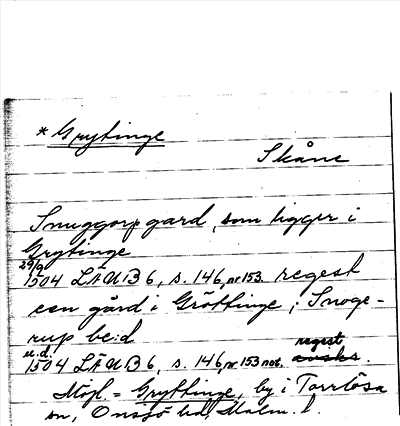 * Grytinge
Skåne
Snuggorp gard, som ligger i
Grytinge
29/9
1504 LÄUB 6, s. 146, nr 153. regest
een gård i Gröttinge, i Snoge-
rup be:d
u.d.
regest
1504 LÄUB 6, s. 146, nr 153 not.
Möjl. = Gryttinge, by i Torrlösa
sn, Onsjö hd, Malm. l.